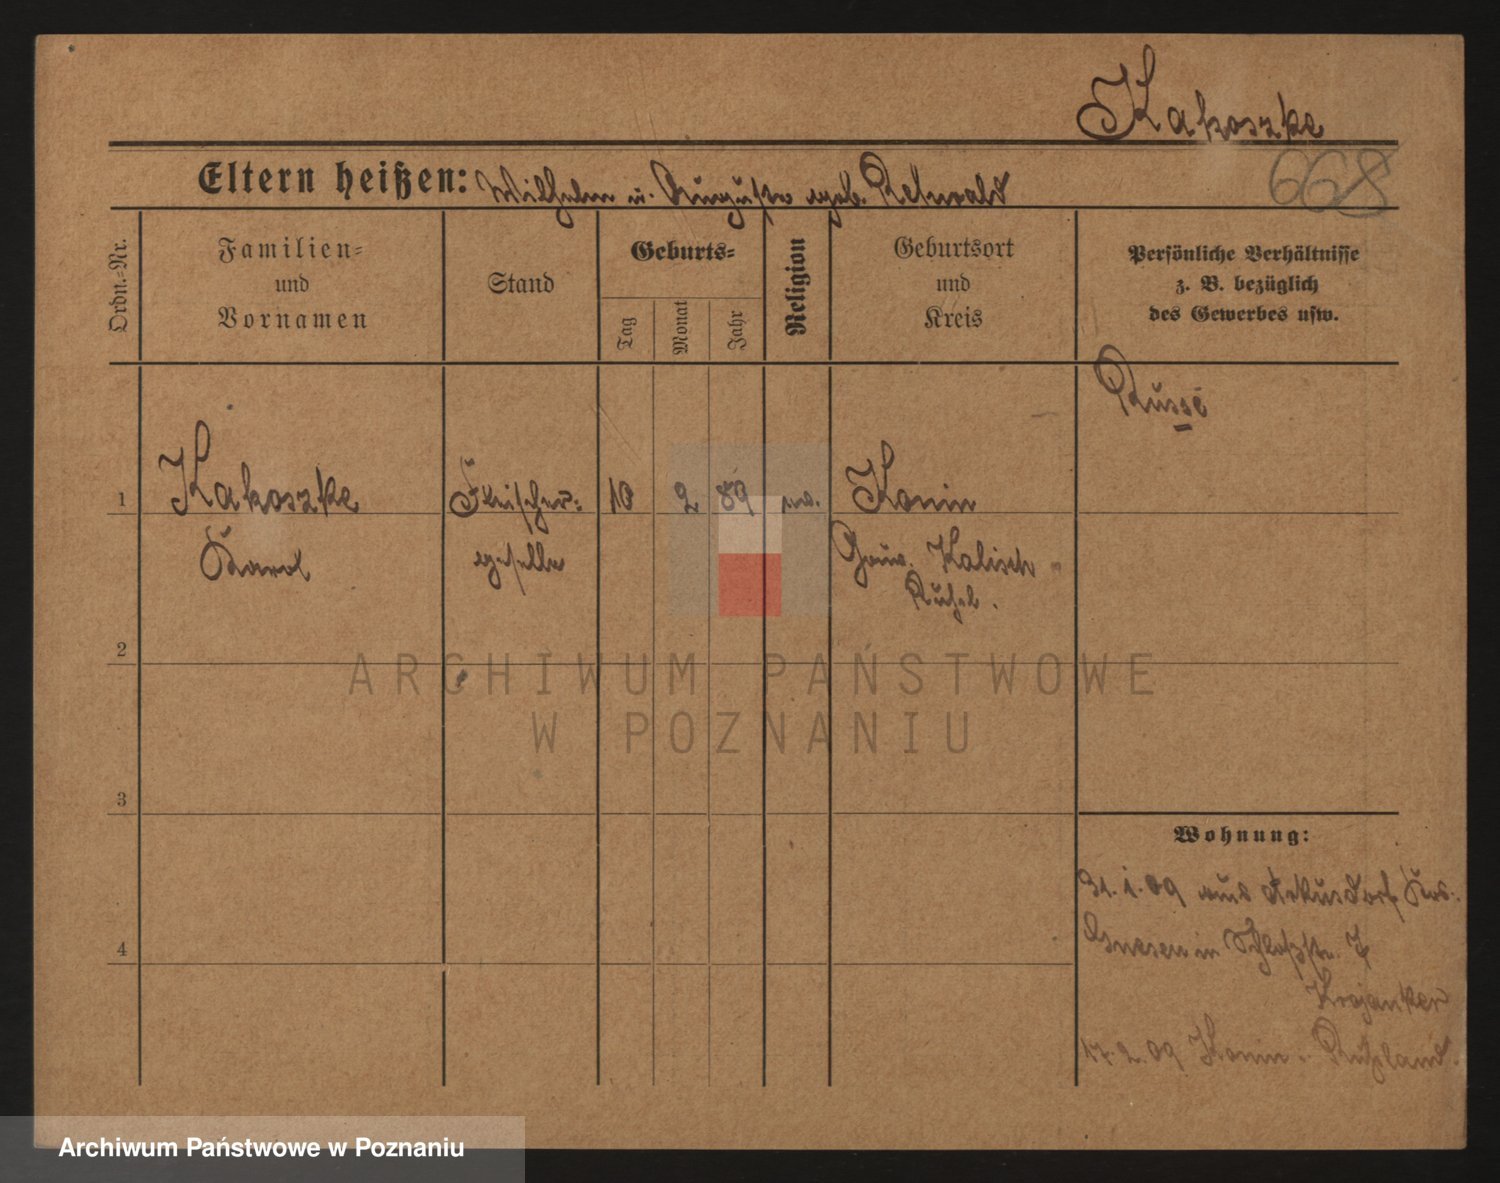 Kakoszke
668
Eltern heißen: Wilhelm u. Auguste geb. Rehwald
Ordn.=Nr.
Familien=
und
Vornamen
Stand
Geburts=
Tag
Monat
Jahr
Religion
Geburtsort
und
Kreis
Persönliche Verhältnisse
z. B. bezüglich
des Gewerbes usw.
Russe
1 Kakoszke Fleischer= 10 2 89 ev. Konin
Karol geselle Gouv. Kalisch
Rußl.
2
ARCHIWUM PAŃSTWOWE
W POZNANIU
3
Wohnung:
31. 1. 09 aus Arkusdorf Krs.
4
Gnesen in Schloßstr. 7
Krojanker
17. 2. 09 Konin i. Rußland.
Archiwum Państwowe w Poznaniu